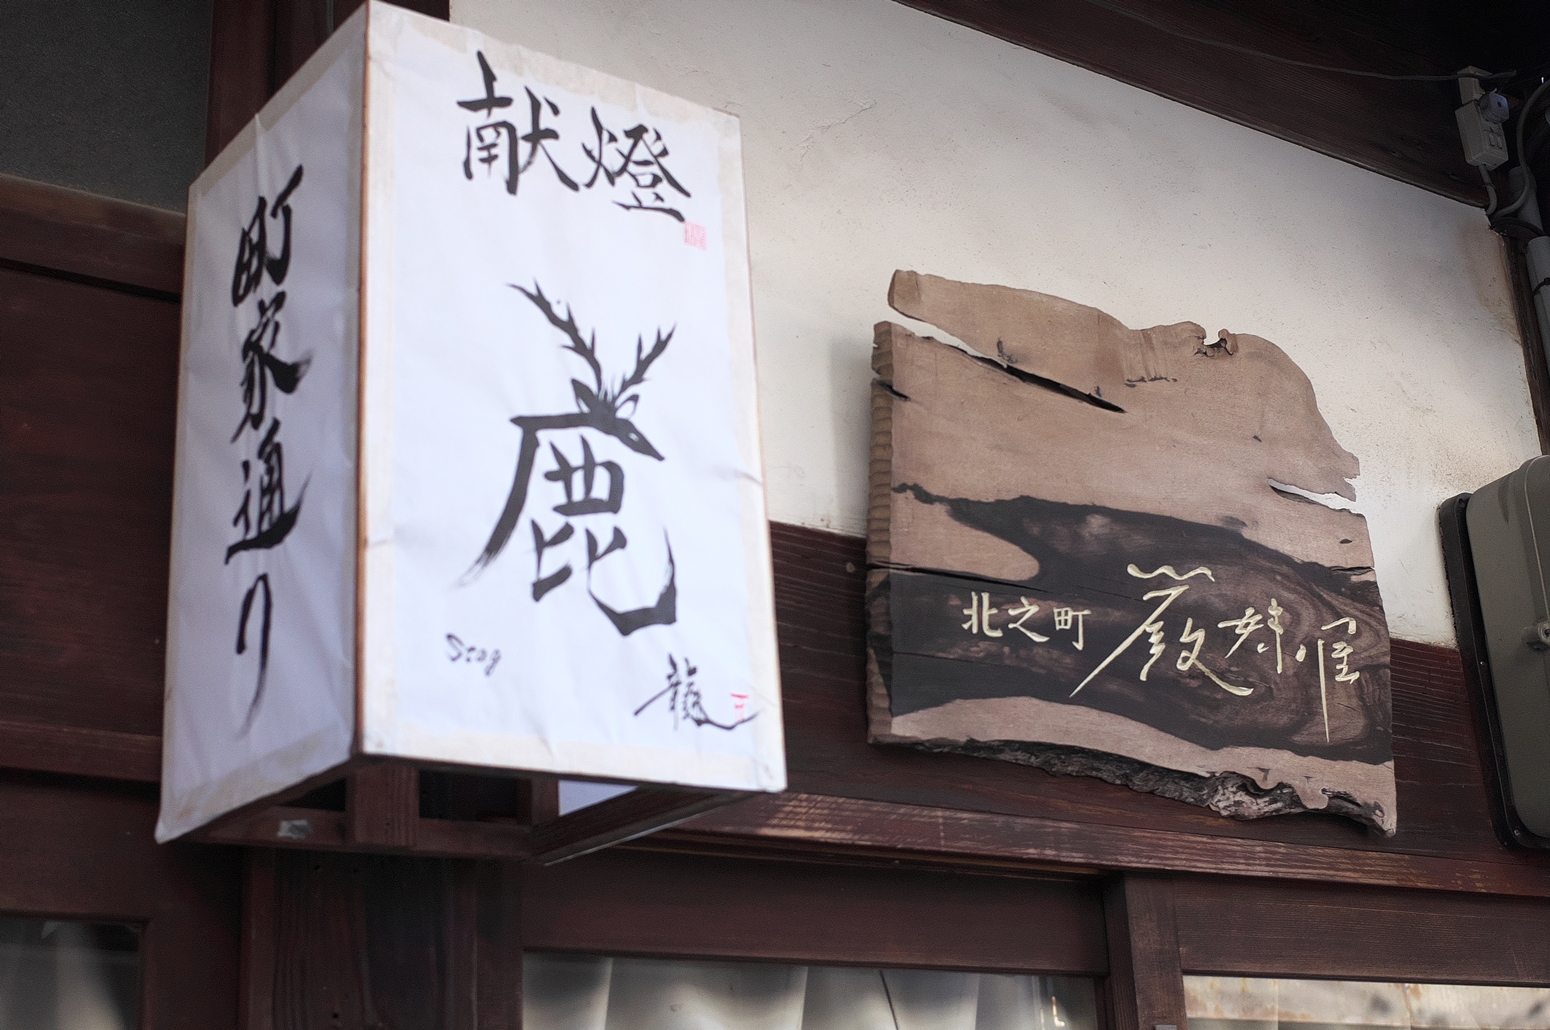 町家通り
献燈
鹿
Stag
龍
北之町